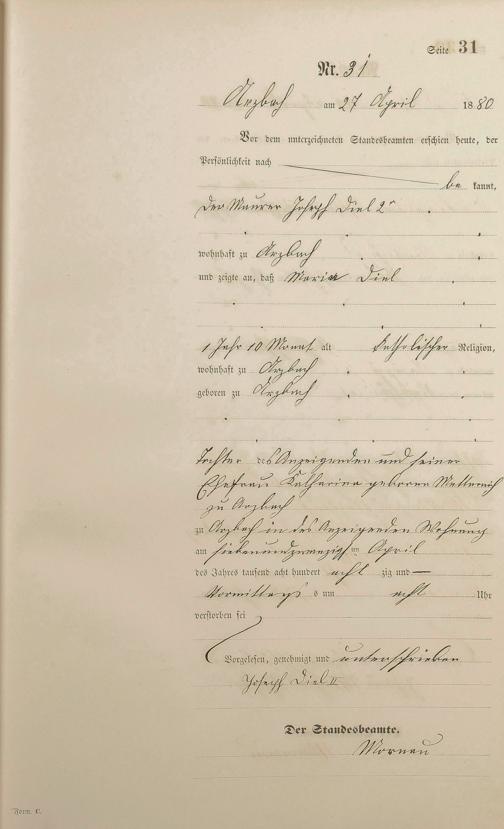 Seite 31
Nr. 31
Arzbach am 27 April 1880
Vor dem unterzeichneten Standesbeamten erschien heute, der
Persönlichkeit nach
be kannt,
der Maurer Joseph Diel 2r
wohnhaft zu Arzbach
und zeigte an, daß Maria Diel
1 Jahr 10 Monat alt katholischer Religion,
wohnhaft zu Arzbach
geboren zu Arzbach
Tochter des Anzeigenden und seiner
Ehefrau Katharina geboren Metternich
zu Arzbach
zu Arzbach in des Anzeigenden Wohnung
am siebenundzwanzigsten April
des Jahres tausend acht hundert acht zig und —
Vormittags um acht Uhr
verstorben sei
Vorgelesen, genehmigt und unterschrieben
Joseph Diel II
Der Standesbeamte.
Mornau
Form. C.